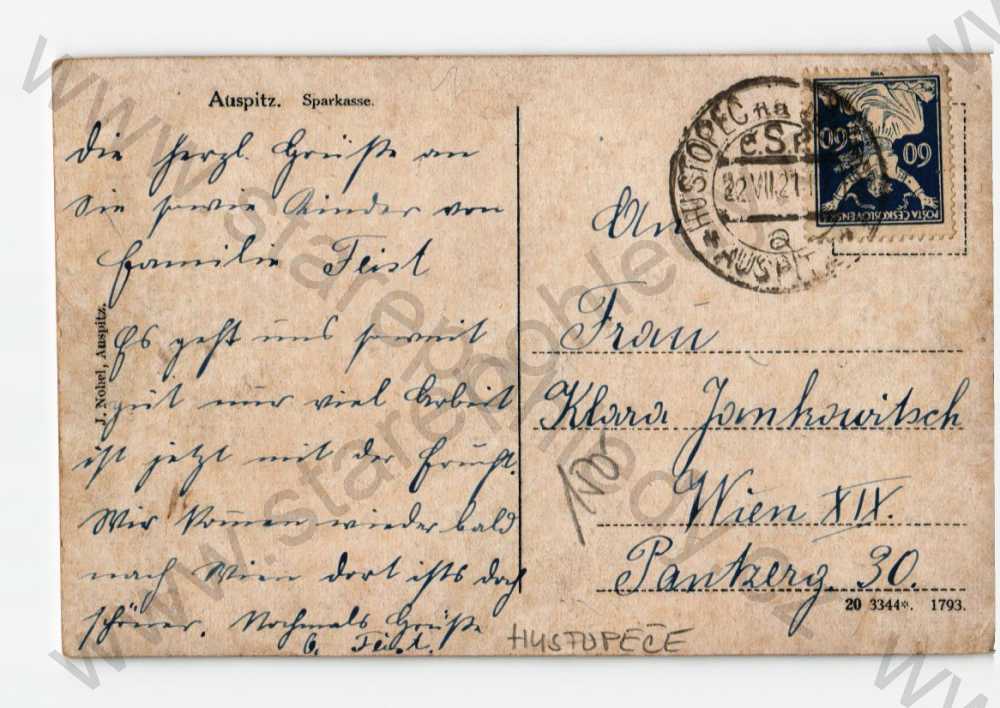 Auspitz. Sparkasse.
Die herzl. Grüße an
Sie sowie Kinder von
Familie Feist
Es geht uns soweit
gut nur viel Arbeit
ist jetzt mit der Frucht.
Wir kommen wieder bald
nach Wien dort ists doch
schöner. Nochmals Grüße
Feist.
J. Nobel, Auspitz.
HUSTOPEČ na
Č.S.P.
22.VII.21
a
AUSPITZ
60 60
POŠTA ČESKOSLOVENSKÁ
An
Frau
Klara Jankowitsch
Wien XIX.
Pantzerg. 30.
100
20 3344*. 1793.
HUSTOPEČE
www.starepohlednice.cz